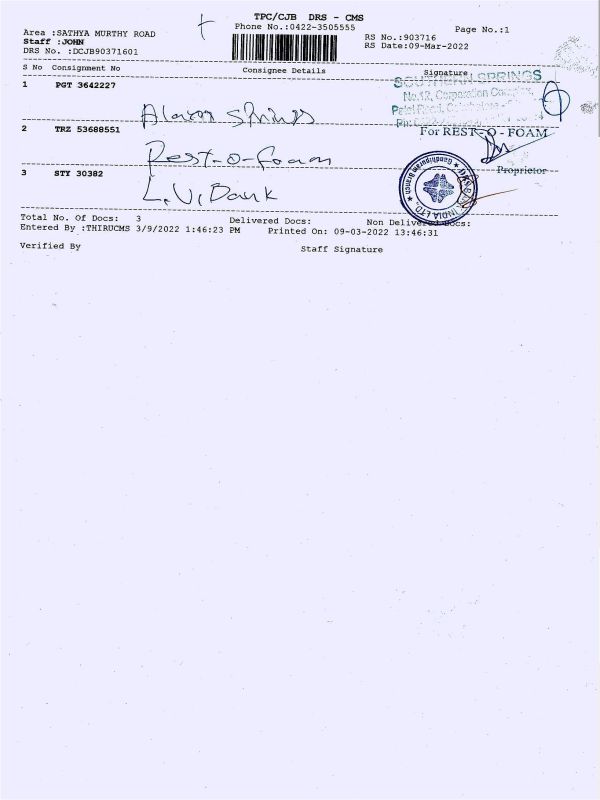 TPC/CJB DRS - CMS
Phone No.:0422-3505555
Page No.:1
Area :SATHYA MURTHY ROAD
Staff :JOHN
DRS No. :DCJB90371601
RS No.:903716
RS Date:09-Mar-2022
S No Consignment No Consignee Details Signature
1 PGT 3642227
SOUTHERN SPRINGS
No.12, Corporation
springs
2 TRZ 53688551
For REST-O-FOAM
Rest-o-foam
Proprietor
3 STY 30382
L.V. Bank
Gandhipuram Branch
INDIA LTD.
Total No. Of Docs: 3 Delivered Docs: Non Delivered Docs:
Entered By :THIRUCMS 3/9/2022 1:46:23 PM Printed On: 09-03-2022 13:46:31
Verified By Staff Signature